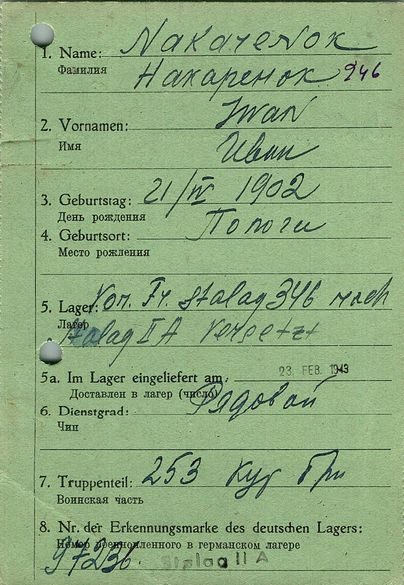 1. Name: Nakarenok
Фамилия Накаренок 946
2. Vornamen: Iwan
Имя Иван
3. Geburtstag: 21/IV 1902
День рождения
4. Geburtsort: Пологи
Место рождения
5. Lager: Von. Fr. Stalag 346 nach
Лагер Stalag II A versetzt
5a. Im Lager eingeliefert am 23. FEB. 1943
Доставлен в лагер (число)
6. Dienstgrad: Рядовой
Чин
7. Truppenteil: 253
Воинская часть
8. Nr. der Erkennungsmarke des deutschen Lagers:
Номер военнопленного в германском лагере
97236 Stalag II A